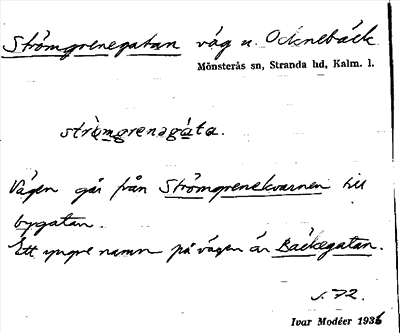 Strömgrenegatan väg u. Ocknebäck
Mönsterås sn, Stranda hd, Kalm. l.
strömgrenəgáta.
Vägen går från Strömgrenekvarnen till
bygatan.
Ett yngre namn på vägen är Bäckegatan.
s. 72.
Ivar Modéer 1936